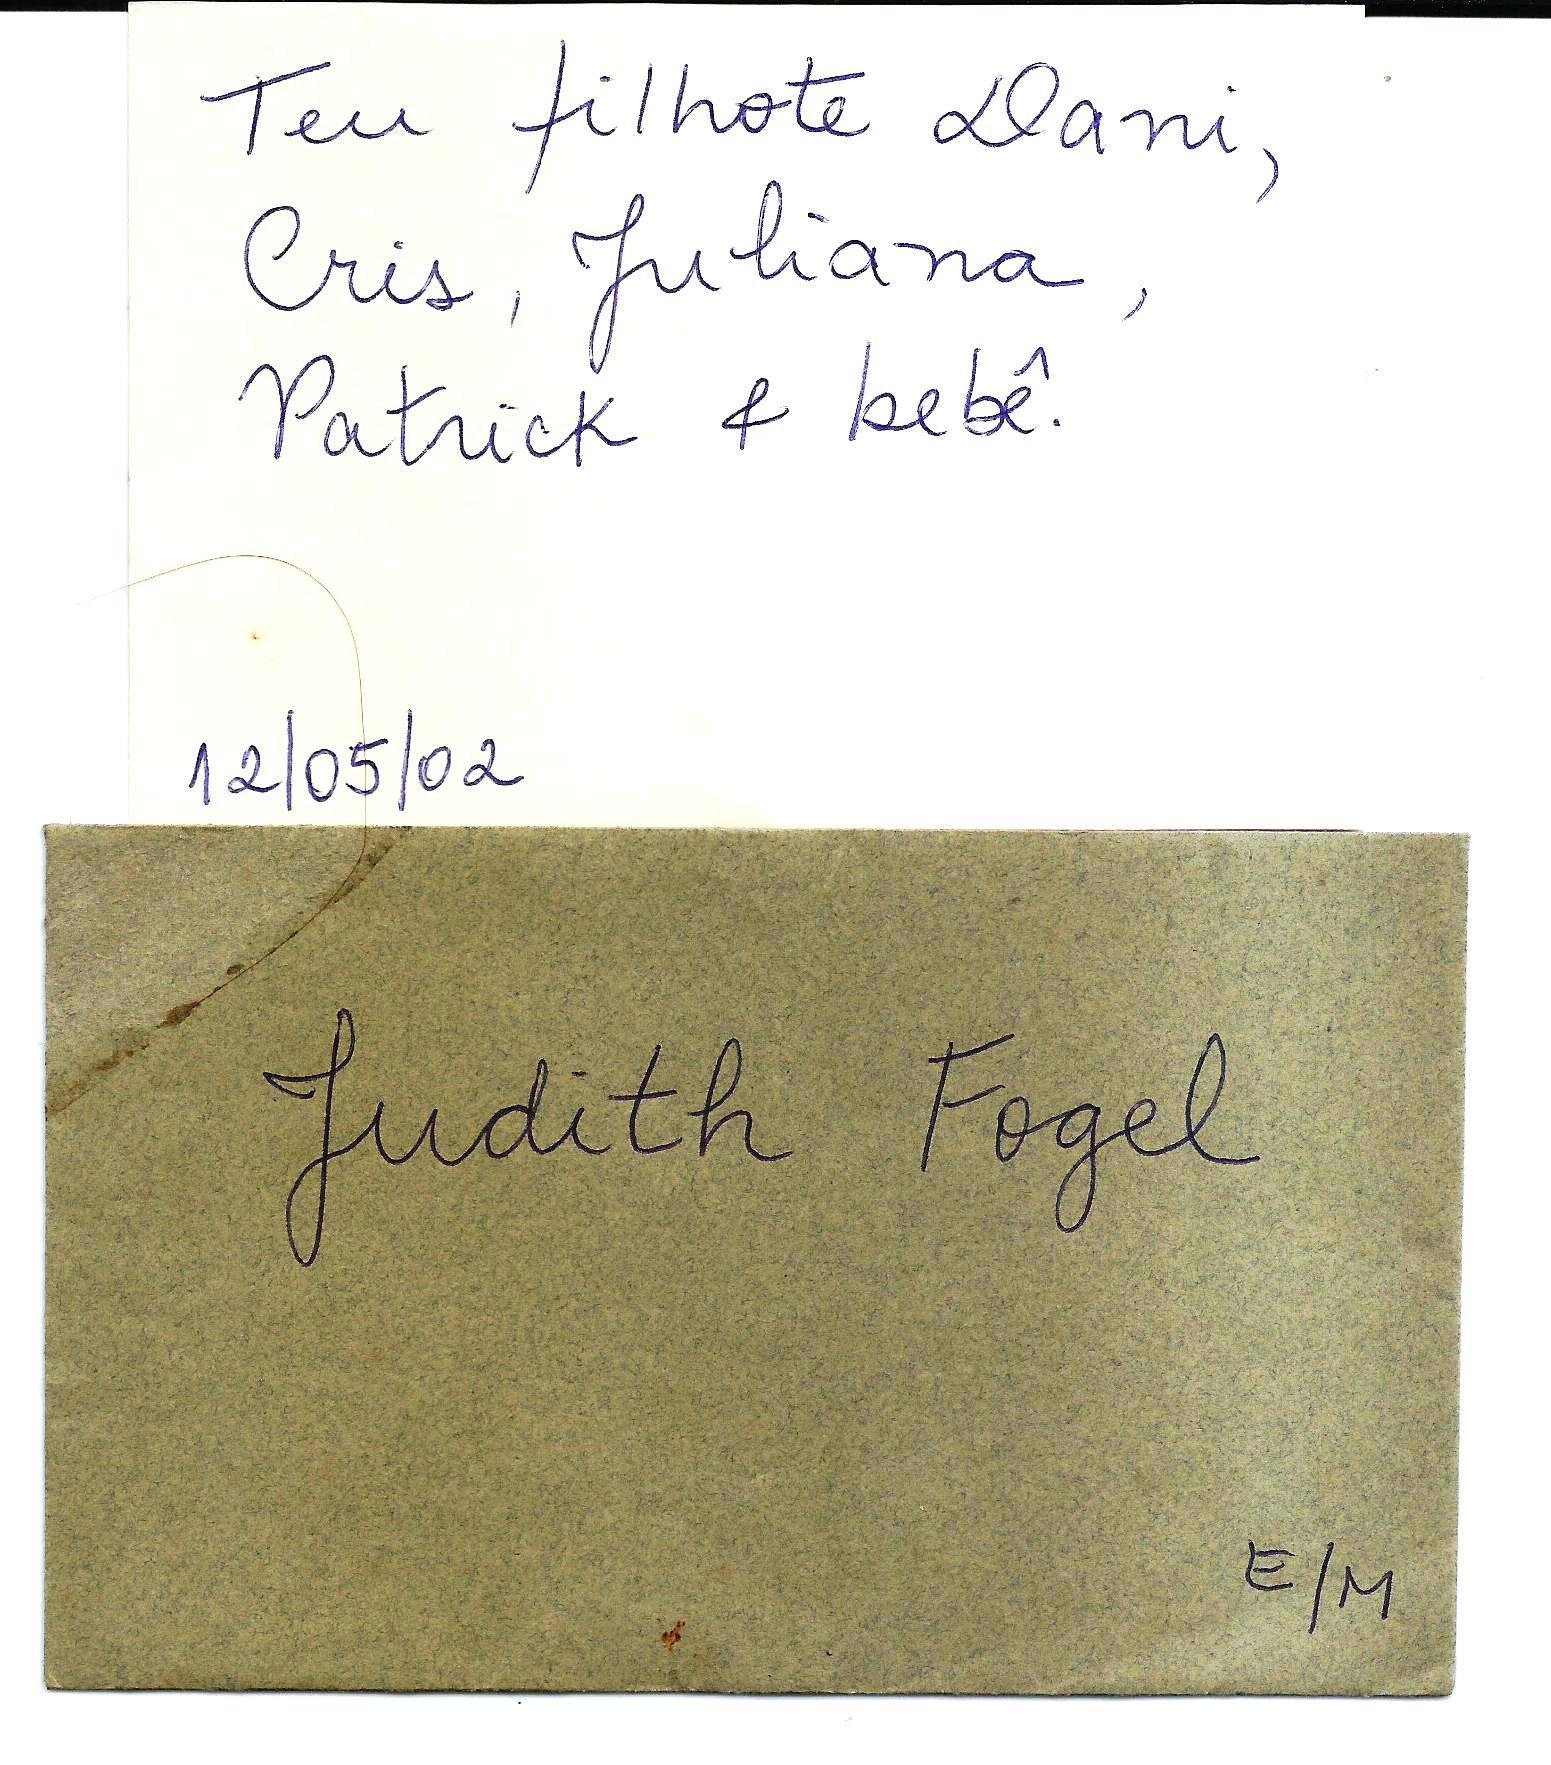 Teu filhote Dani,
Cris, Juliana,
Patrick & bebê.
12/05/02
Judith Fogel
E/M